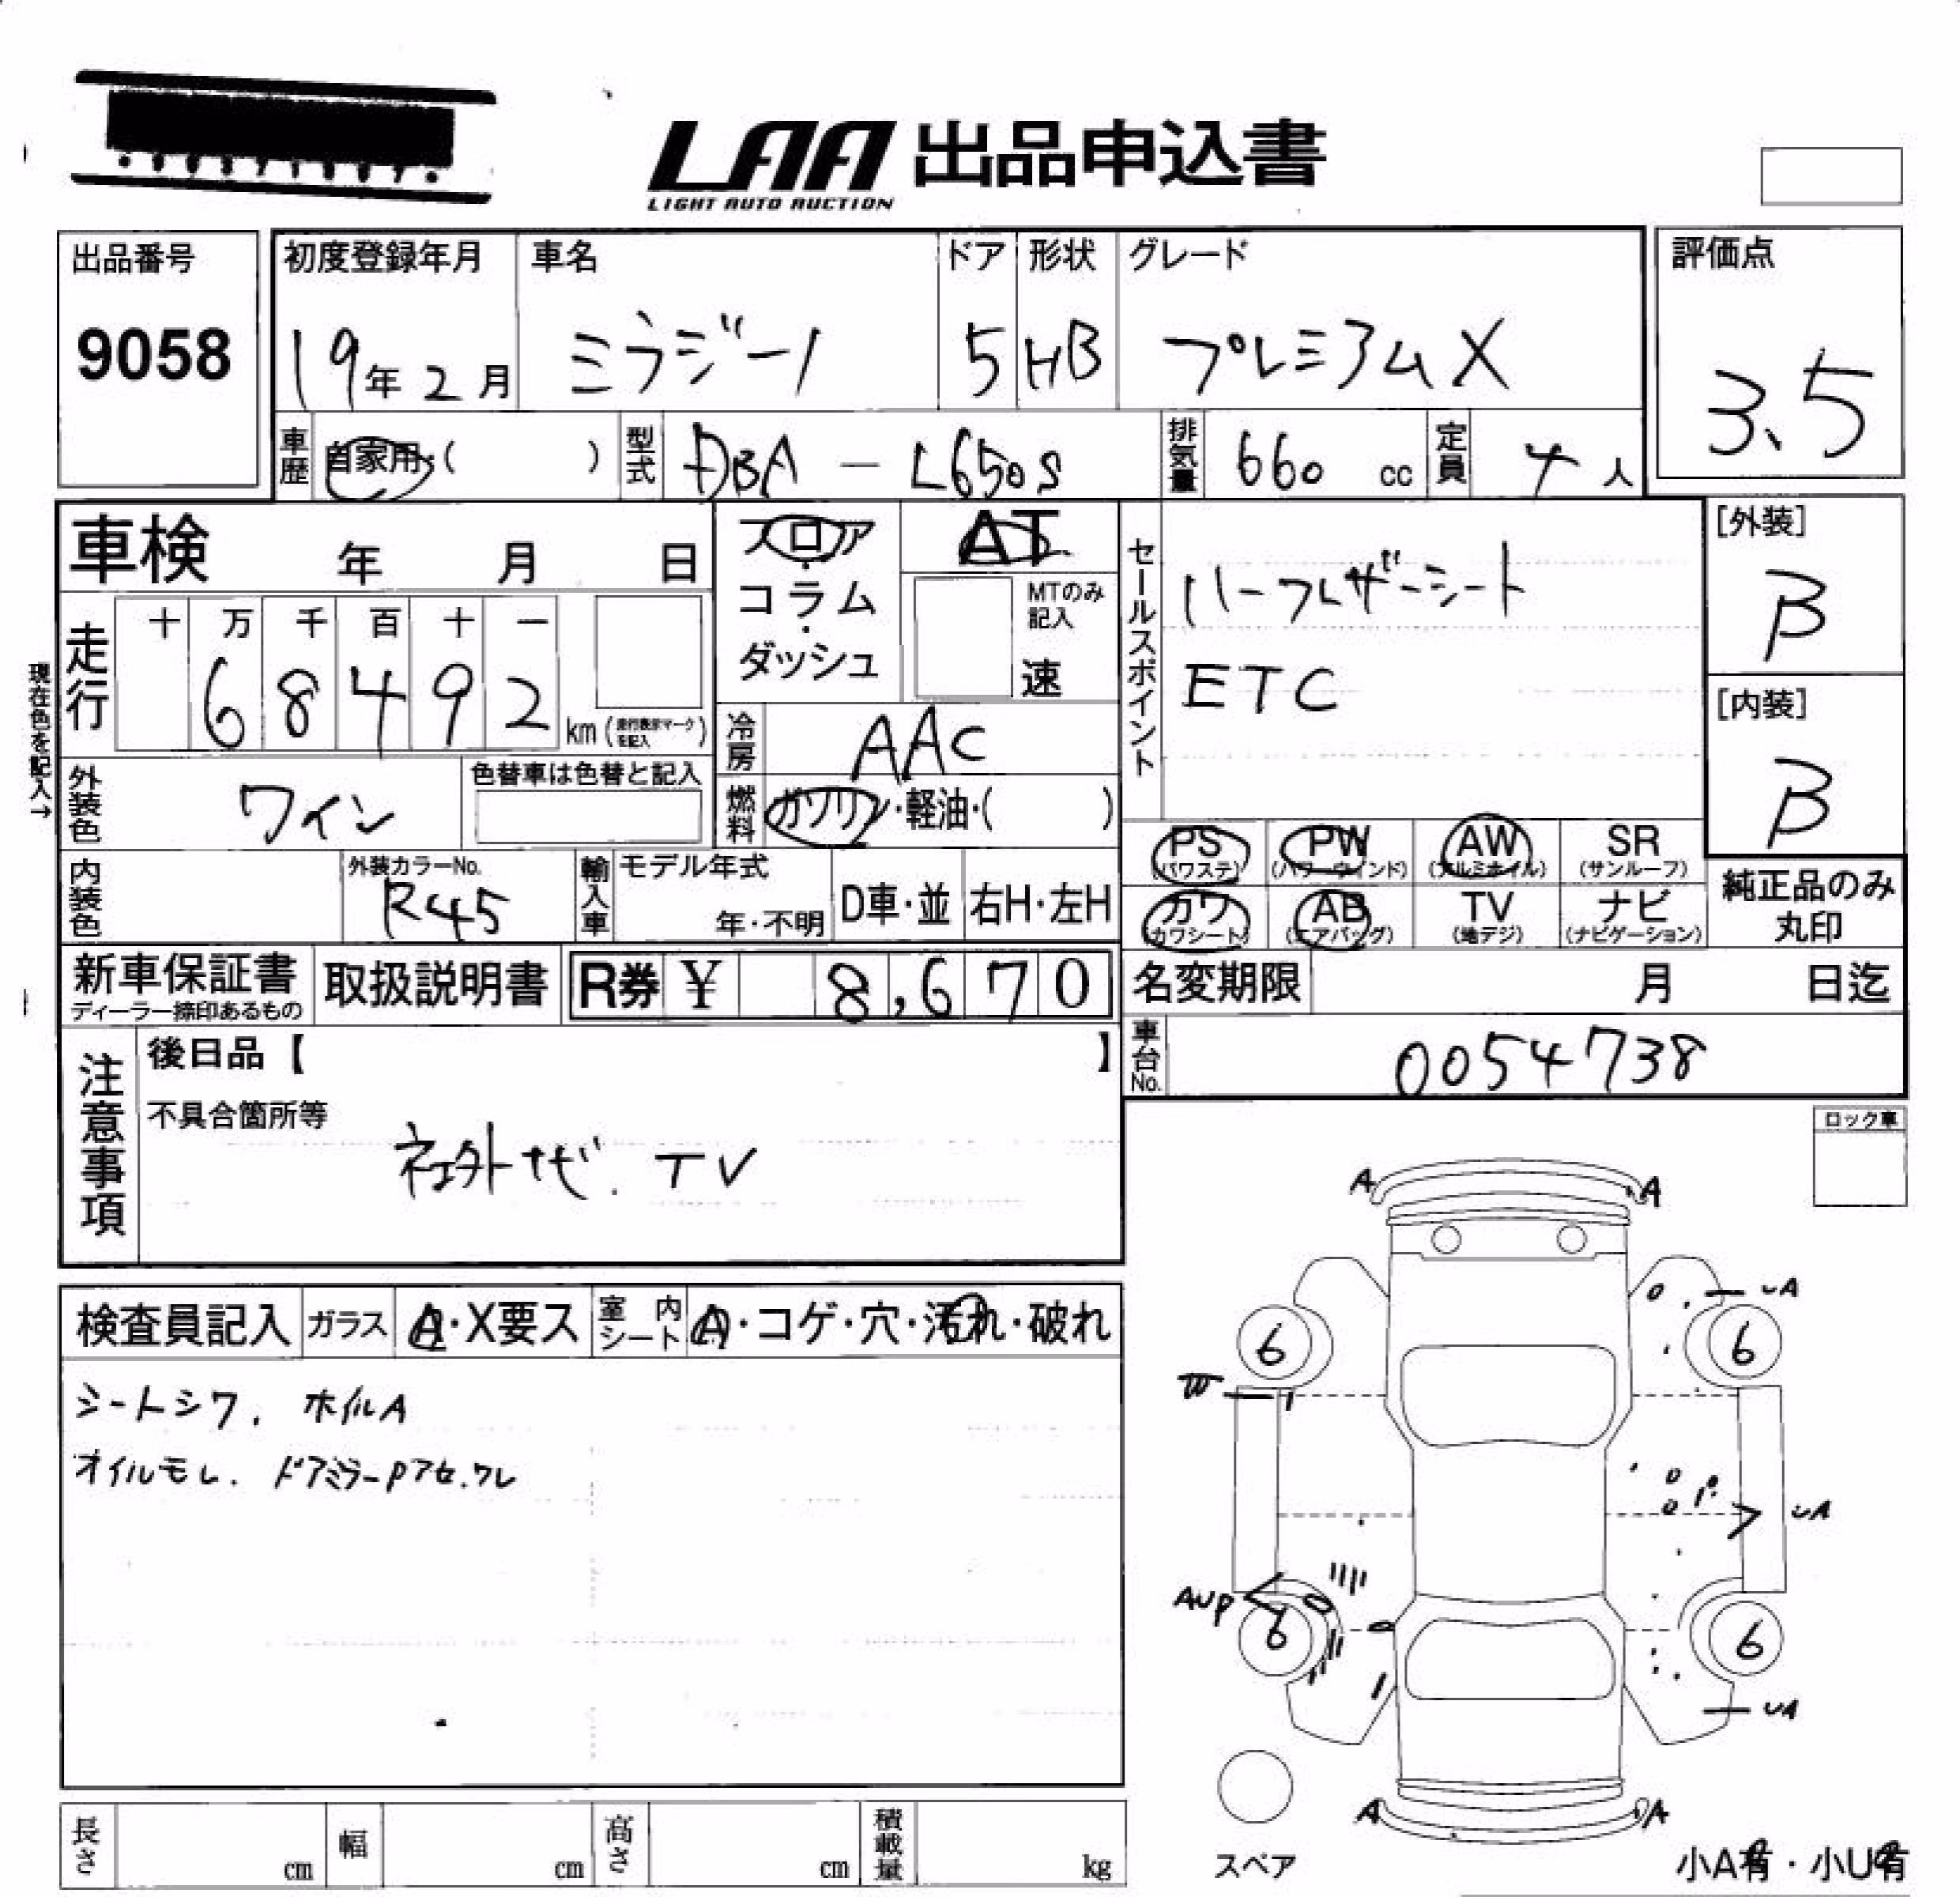 LAA 出品申込書
LIGHT AUTO AUCTION
出品番号
9058
初度登録年月
19年2月
車名
ミラジーノ
ドア
5
形状
HB
グレード
プレミアムX
評価点
3.5
車歴
自家用・( )
型式
DBA － L650S
排気量
660 cc
定員
4 人
車検 年 月 日
フロア・コラム・ダッシュ
AT
MTのみ記入
速
セールスポイント
ハーフレザーシート
ETC
[外装]
B
[内装]
B
現在色を記入→
走行
十 万 千 百 十 一
6 8 4 9 2
km (走行表示マークを記入)
冷房
AAC
外装色
ワイン
色替車は色替と記入
燃料
ガソリン・軽油・( )
PS (パワステ)
PW (パワーウインド)
AW (アルミホイル)
SR (サンルーフ)
カワ (カワシート)
AB (エアバッグ)
TV (地デジ)
ナビ (ナビゲーション)
純正品のみ丸印
内装色
外装カラーNo.
R45
輸入車
モデル年式
年・不明
D車・並
右H・左H
新車保証書
ディーラー締印あるもの
取扱説明書
R券 ¥ 8,670
名変期限 月 日迄
車台No.
0054738
注意事項
後日品【 】
不具合箇所等
社外ナビ. TV
ロック車
検査員記入
ガラス
A・X要ス
室内シート
A・コゲ・穴・汚れ・破れ
シートシワ. ホイルA
オイルモレ. ドアミラーPアセ.ワレ
A A
UA
6 6
UA
AUP
6 6
UA
A A
スペア
小A有・小U有
長さ cm
幅 cm
高さ cm
積載量 kg